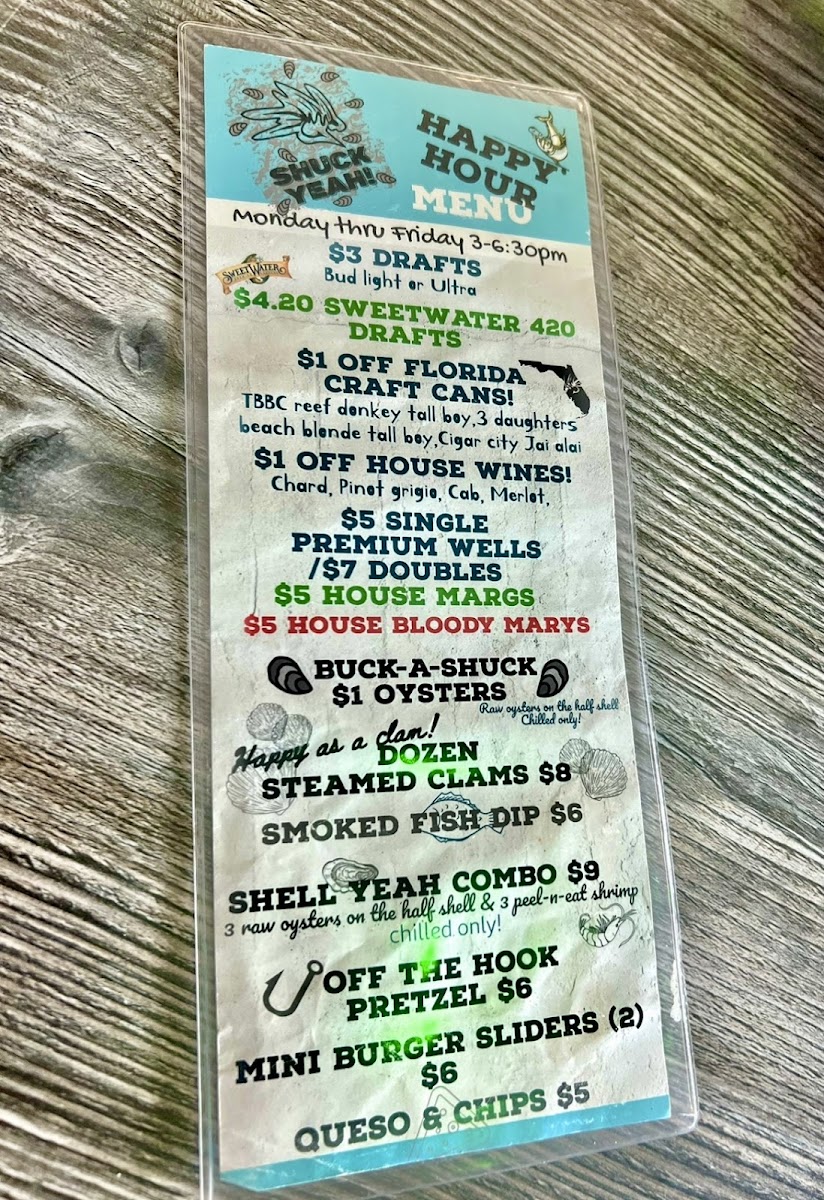 SHUCK
YEAH!
HAPPY
HOUR
MENU
Monday thru Friday 3-6:30pm
$3 DRAFTS
Bud light or Ultra
SWEETWATER
$4.20 SWEETWATER 420
DRAFTS
$1 OFF FLORIDA
CRAFT CANS!
TBBC reef donkey tall boy,3 daughters
beach blonde tall boy,Cigar city Jai alai
$1 OFF HOUSE WINES!
Chard, Pinot grigio, Cab, Merlot,
$5 SINGLE
PREMIUM WELLS
/$7 DOUBLES
$5 HOUSE MARGS
$5 HOUSE BLOODY MARYS
BUCK-A-SHUCK
$1 OYSTERS
Raw oysters on the half shell
Chilled only!
Happy as a clam!
DOZEN
STEAMED CLAMS $8
SMOKED FISH DIP $6
SHELL YEAH COMBO $9
3 raw oysters on the half shell & 3 peel-n-eat shrimp
chilled only!
OFF THE HOOK
PRETZEL $6
MINI BURGER SLIDERS (2)
$6
QUESO & CHIPS $5